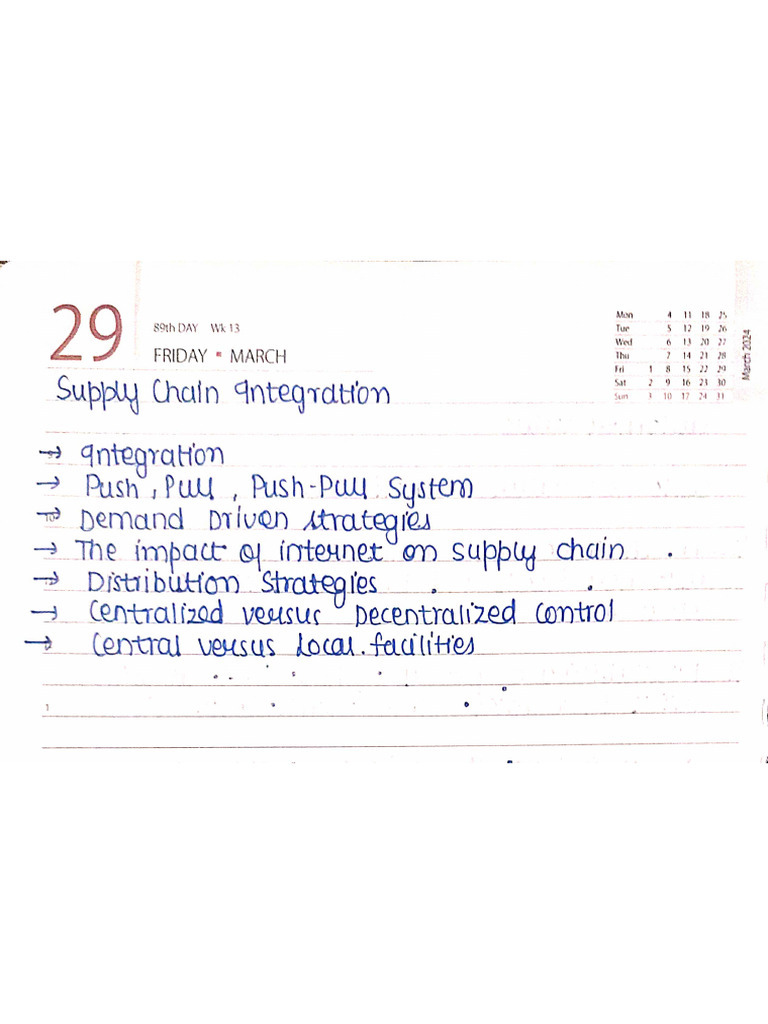 29
89th DAY Wk 13
FRIDAY • MARCH
Mon 4 11 18 25
Tue 5 12 19 26
Wed 6 13 20 27
Thu 7 14 21 28
Fri 1 8 15 22 29
Sat 2 9 16 23 30
Sun 3 10 17 24 31
March 2024
Supply Chain Integration
→ Integration
→ Push, Pull, Push-Pull System
→ Demand Driven Strategies
→ The impact of internet on supply chain.
→ Distribution Strategies
→ Centralized versus Decentralized Control
→ Central versus Local.facilities